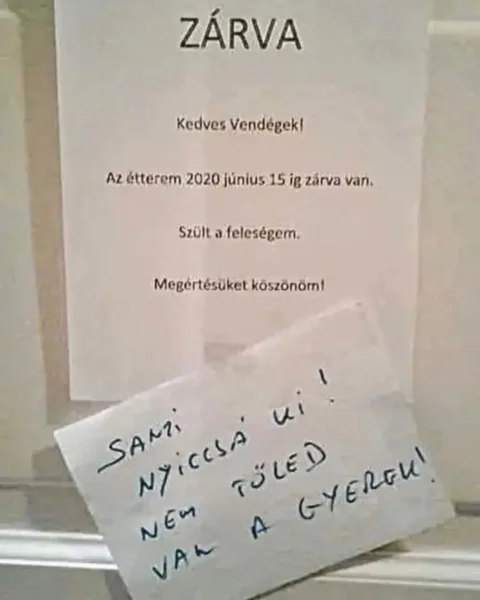 ZÁRVA
Kedves Vendégek!
Az étterem 2020 június 15 ig zárva van.
Szült a feleségem.
Megértésüket köszönöm!
SANYI
NYICCSÁ KI!
NEM TŐLED
VAN A GYEREK!